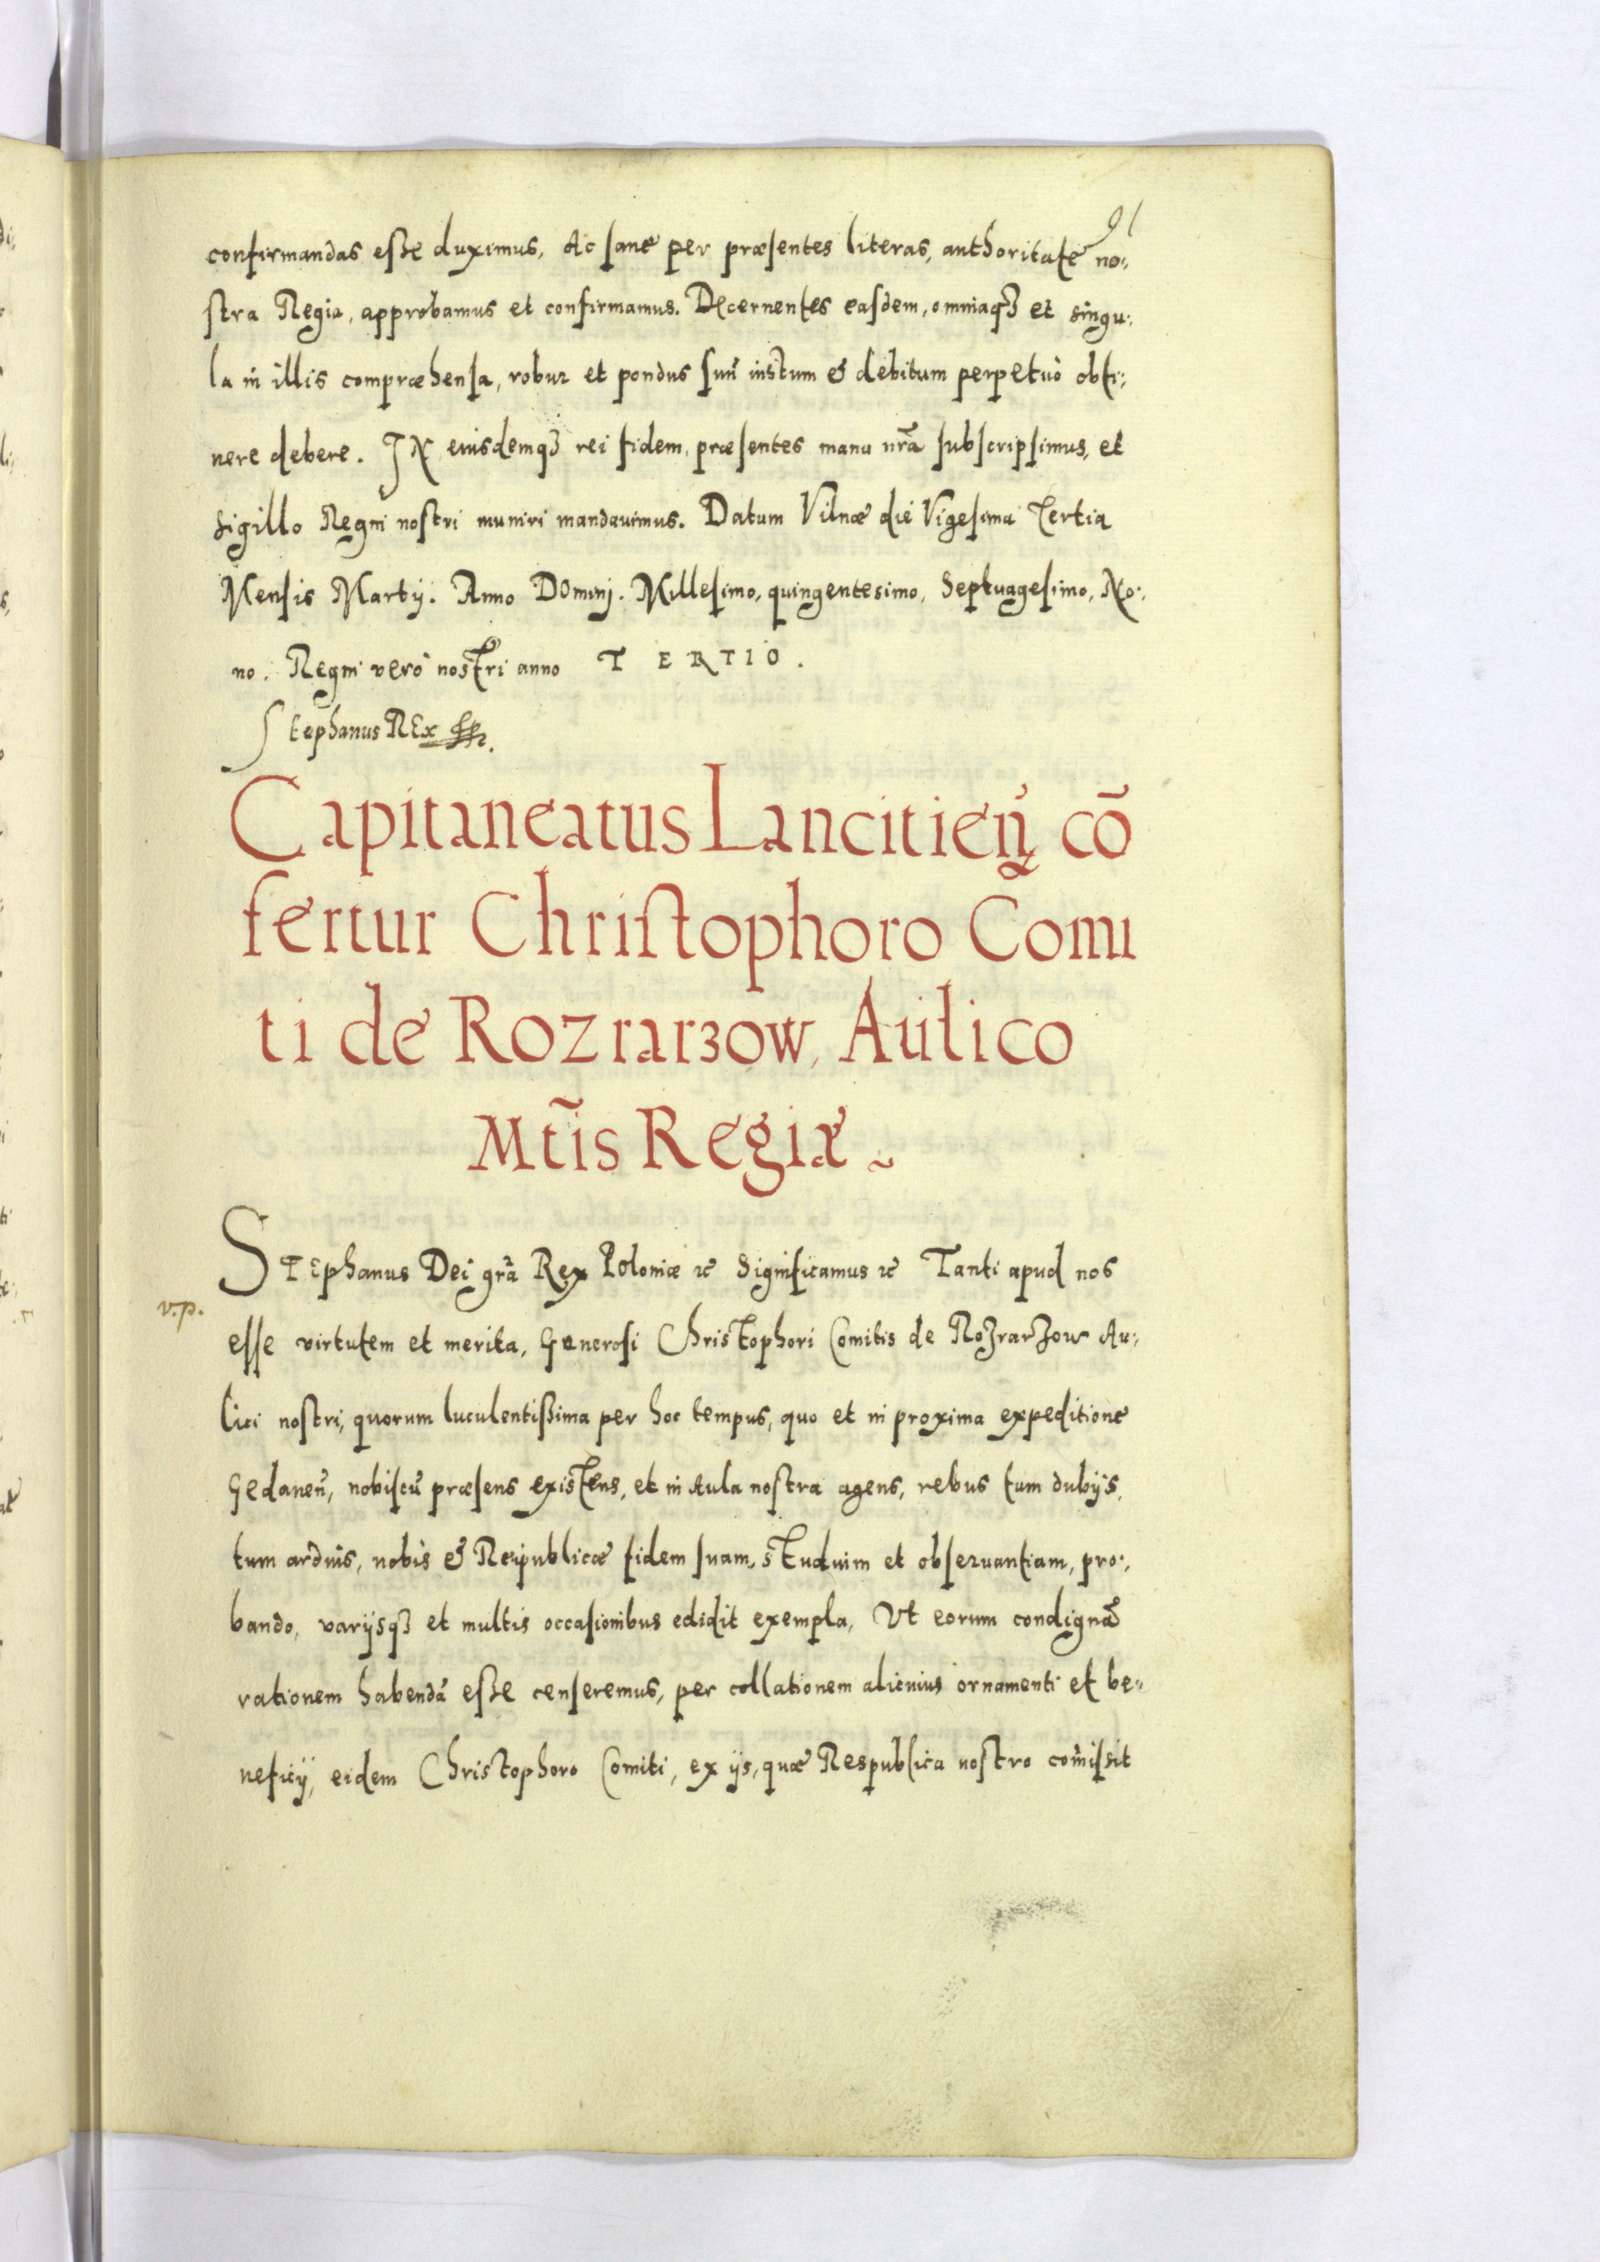 91
confirmandas esse duximus, Ac sane per præsentes literas, authoritate no:,
stra Regia, approbamus et confirmamus. Decernentes easdem, omniaqꝫ et singu:,
la in illis compræhensa, robur et pondus suu͂ iustum & debitum perpetuò obti:,
nere debere. IN euisdemqꝫ rei fidem, præsentes manu nr̃a subscripsimus, et
sigillo Regni nostri muniri mandauimus. Datum Vilnæ die Vigesima Tertia
Mensis Martij. Anno Domini. Millesimo, quingentesimo, Septuagesimo, No:,
no. Regni verò nostri anno TERTIO.
Stephanus REx
Capitaneatus Lancitien̄ cō
fertur Christophoro Comi
ti de Rozrarzow, Aulico
Mt̃is Regiæ
STEphanus Dei gr̃a Rex Poloniæ ꝛc Significamus ꝛc Tanti apud nos
v.p.
esse virtutem et merita, Generosi Christophori Comitis de Rozrarzow Au:,
lici nostri, quorum luculentißima per hoc tempus, quo et in proxima expeditione
Gedanen̄, nobiscū præsens existens, et in Aula nostra agens, rebus tum dubijs,
tum arduis, nobis & Reipublicæ fidem suam, studium et obseruantiam, pro:,
bando, varijsqꝫ et multis occasionibus edidit exempla, Vt eorum condignā
rationem habendā esse censeremus, per collationem alicuius ornamenti et be:,
neficij, eidem Christophoro Comiti, ex ijs, quæ Respublica nostro com̄isit